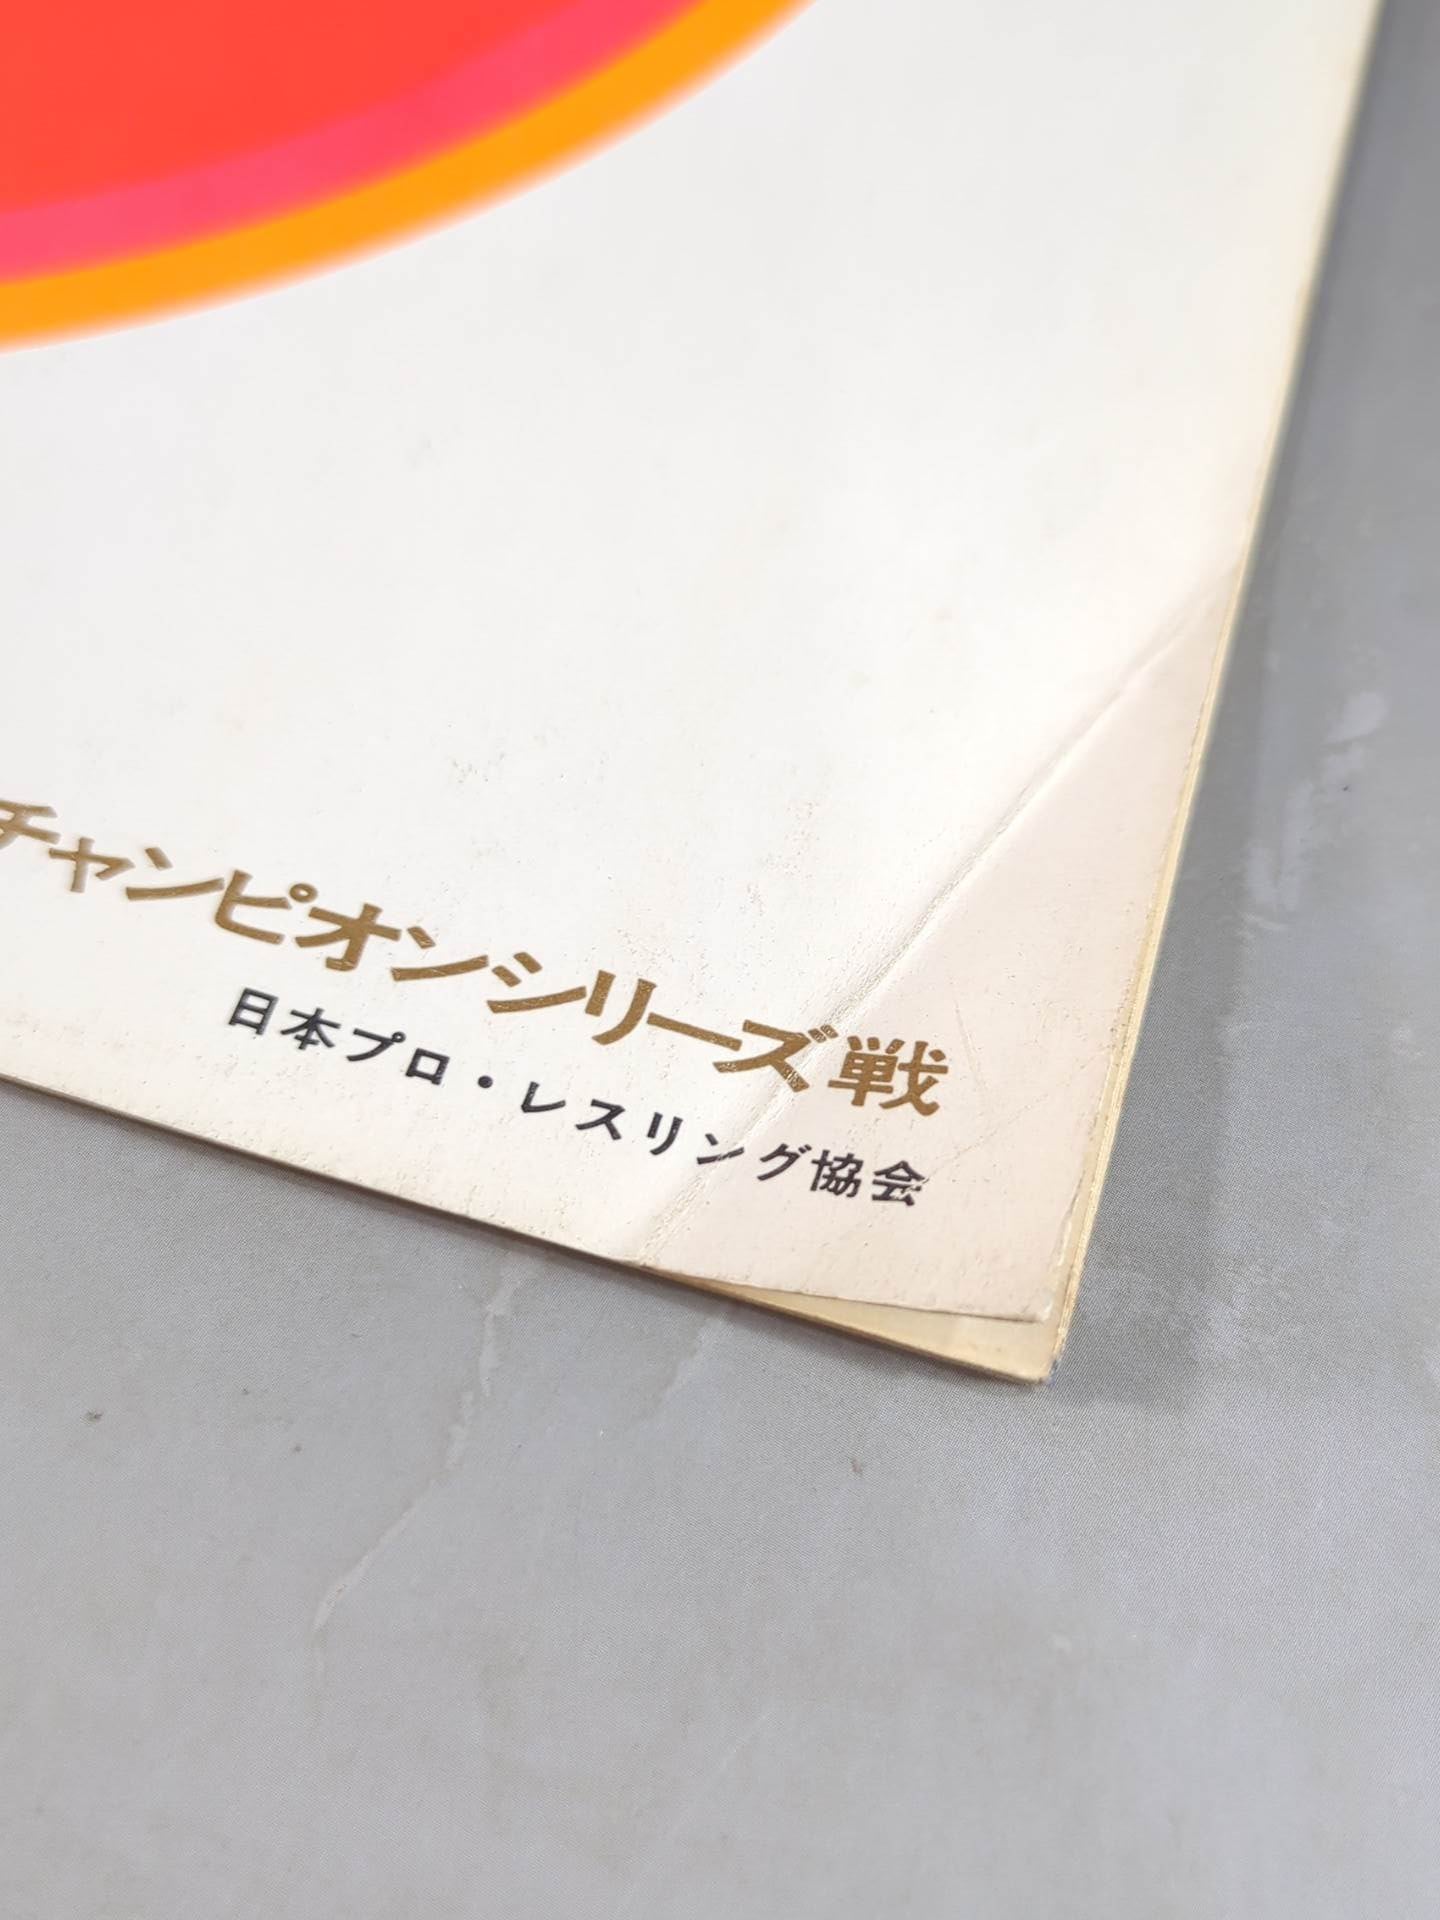 チャンピオンシリーズ戦
日本プロ・レスリング協会